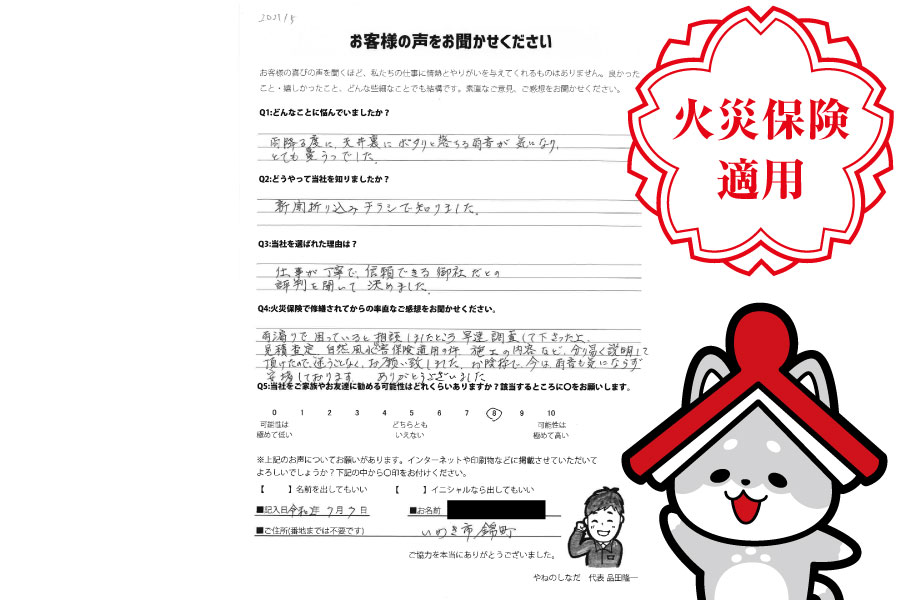 2021/5
お客様の声をお聞かせください
お客様の喜びの声を聞くほど、私たちの仕事に情熱とやりがいを与えてくれるものはありません。良かった
こと・嬉しかったこと、どんな些細なことでも結構です。素直なご意見、ご感想をお聞かせください。
Q1:どんなことに悩んでいましたか？
雨降る度に、天井裏にポタリと落ちる雨音が気になり、
とても憂うつでした。
Q2:どうやって当社を知りましたか？
新聞折り込みチラシで知りました。
Q3:当社を選ばれた理由は？
仕事が丁寧で、信頼できる御社だとの
評判を聞いて決めました。
Q4:火災保険で修繕されてからの率直なご感想をお聞かせください。
雨漏りで困っていると相談しましたところ早速調査して下さった上、
見積査定、自然風水害保険適用の件、施工の内容など、分り易く説明して
頂けたので、迷うことなく、お願い致しました。お陰様で、今は、雨音も気にならず
安堵しております。ありがとうございました
Q5:当社をご家族やお友達に勧める可能性はどれくらいありますか？該当するところに〇をお願いします。
0 1 2 3 4 5 6 7 8 9 10
可能性は 極めて低い どちらとも いえない 可能性は 極めて高い
※上記のお声についてお願いがあります。インターネットや印刷物などに掲載させていただいて
よろしいでしょうか？下記の中から〇印をお付けください。
【　　】名前を出してもいい　【　　】イニシャルなら出してもいい
■記入日 令和2年 7月 7日 ■お名前
■ご住所(番地までは不要です) いわき市錦町
ご協力を本当にありがとうございました。
やねのしなだ　代表 品田隆一
火災保険
適用